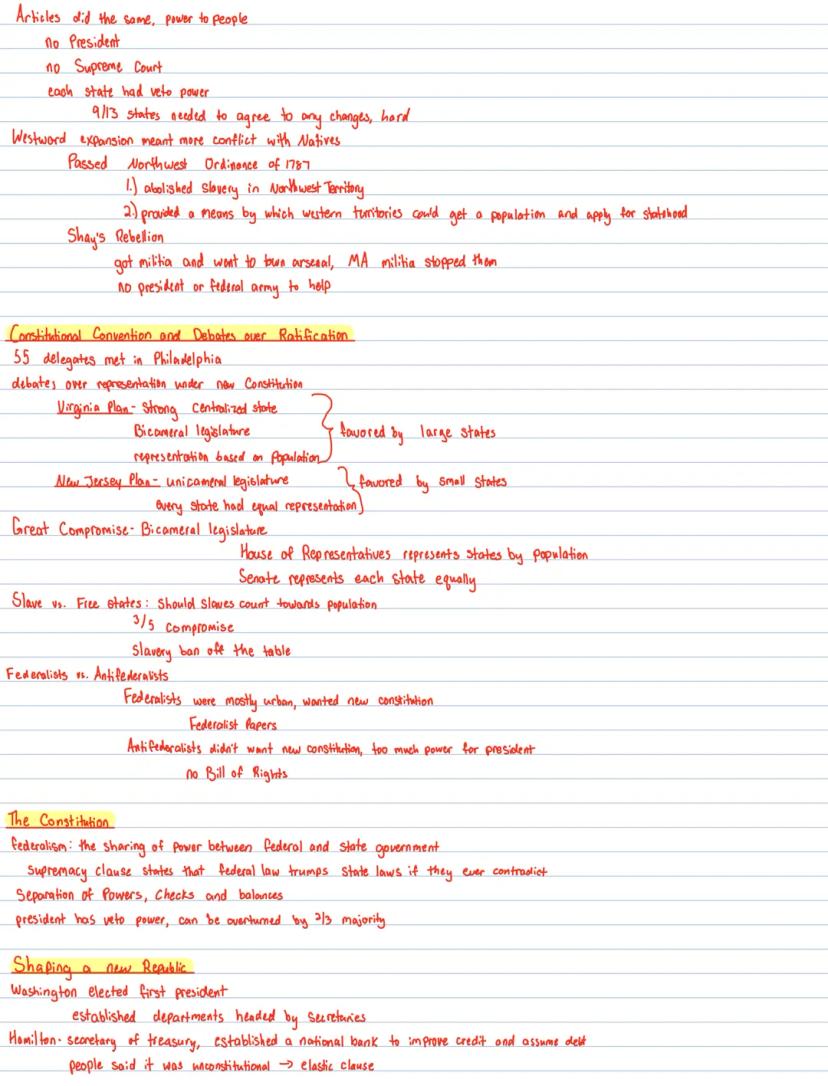 Articles did the same, power to people
no President
no Supreme Court
each state had veto power
9/13 states needed to agree to any changes, hard
Westword expansion meant more conflict with Natives
Passed Northwest Ordinance of 1787
1.) abolished slavery in Northwest Territory
2.) provided a means by which western turritories could get a population and apply for statehood
Shay's Rebellion
got militia and went to town arsenal, MA militia stopped them
no president or federal army to help
Constitutional Convention and Debates over Ratification
55 delegates met in Philadelphia
debates over representation under new Constitution
Virginia Plan - Strong centralized state
Bicameral legislature
representation based on Population
favored by large states
New Jersey Plan - unicameral legislature
every state had equal representation
favored by small states
Great Compromise - Bicameral legislature
House of Representatives represents states by population
Senate represents each state equally
Slave vs. Free states: Should slaves count towards population
3/5 compromise
slavery ban off the table
Federalists vs. Antifederalists
Federalists were mostly urban, wanted new constitution
Federalist Papers
Antifederalists didn't want new constitution, too much power for president
no Bill of Rights
The Constitution
federalism: the sharing of power between federal and state government
supremacy clause states that federal law trumps state laws if they ever contradict
Separation of Powers, Checks and balances
president has veto power, can be overturned by 2/3 majority
Shaping a new Republic
Washington elected first president
established departments headed by secretaries
Hamilton - secretary of treasury, established a national bank to improve credit and assume debt
people said it was unconstitutional → elastic clause